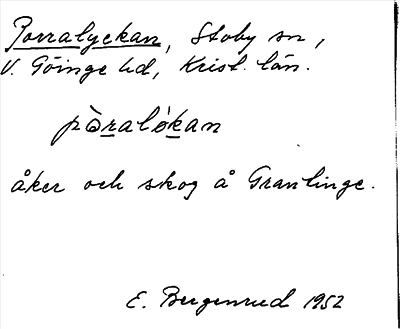 Porralyckan, Stoby sn,
V. Göinge hd, Krist. län.
pòralókan
åker och skog å Granlinge.
E. Bergenrud 1952